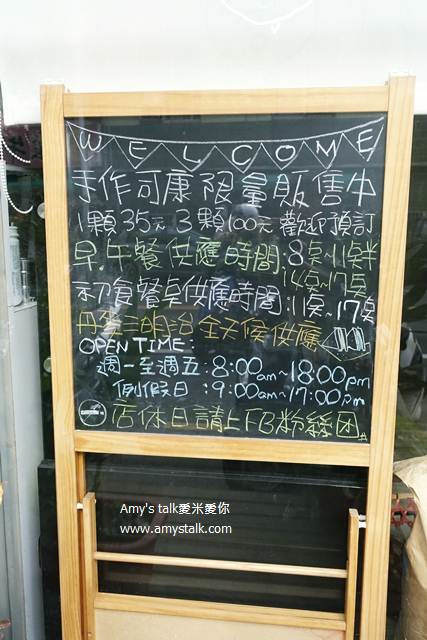 WELCOME
手作可康限量販售中
1顆35元 3顆100元 歡迎預訂
早.午餐供應時間:8点~11点半
14点~17点
初食餐点供應時間:11点~17点
丹麥三明治 全天候供應
OPEN TIME:
週一至週五:8:00am~18:00pm
例假日:9:00am~17:00pm
店休日請上FB粉絲團
Amy's talk愛米愛你
www.amystalk.com